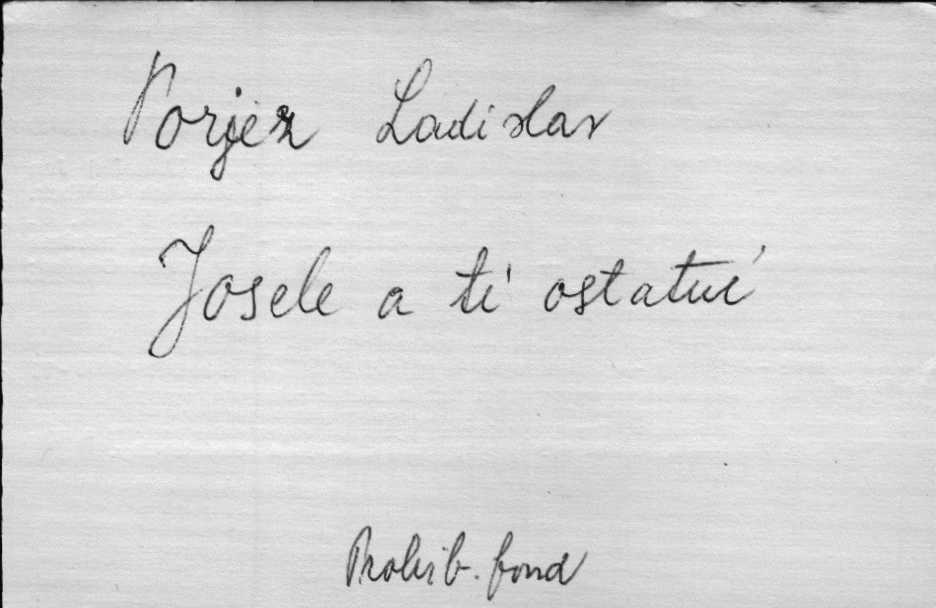 Porjez Ladislav
Josele a ti ostatní
Prohib. fond